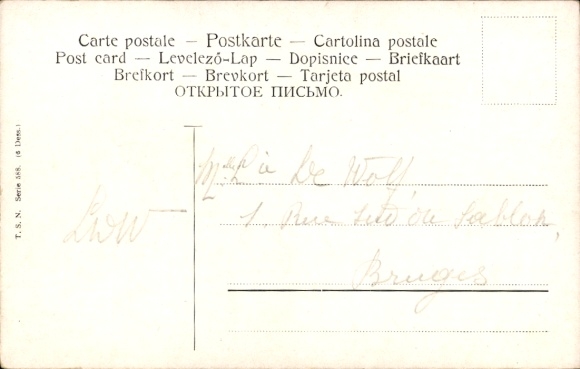 Carte postale — Postkarte — Cartolina postale
Post card — Levelező-Lap — Dopisnice — Briefkaart
Brefkort — Brevkort — Tarjeta postal
ОТКРЫТОЕ ПИСЬМО.
T. S. N. Serie 588. (6 Dess.)
De Wolf,
1, Rue Sud du Sablon,
Bruges